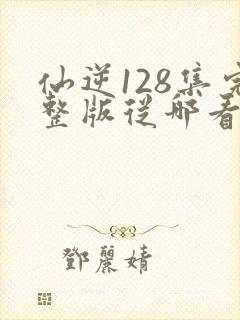 仙逆128集完
整版從哪看
鄧麗婧